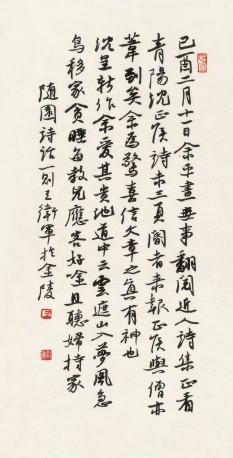 己酉二月十一日余平晝無事翻閱近人詩集正看
青陽沈正侯詩未三頁閽者來報正侯與僧亦
葦到矣余為驚喜信文章之真有神也
沈呈新作余愛其貴池道中云雲遮山入夢風急
鳥移家貪睡每教兒應客好吟且聽婦持家
隨園詩話一則王衛軍於金陵